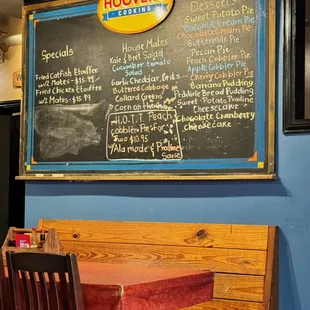 HOOVER'S
COOKING
Specials
Fried Catfish Etouffee
w/2 Mates: $15.99
Fried Chicken Etouffee
w/2 Mates: $15.99
House Mates
Kale & Beet Salad
Cucumber tomato
Salad
Garlic Cheddar
Buttered Cabbage
Collard Greens
Corn
H.O.T.T Peach
cobbler
two $10.95
Ala mode & Praline
Sauce
Desserts
Sweet Potato Pie
Coconut Cream Pie
Chocolate Cream Pie
Buttermilk Pie
Pecan Pie
Peach Cobbler Pie
Apple Cobbler Pie
Cherry Cobbler Pie
Banana Pudding
Praline Bread Pudding
Sweet Potato Praline
Cheesecake
Chocolate Cranberry
Cheesecake